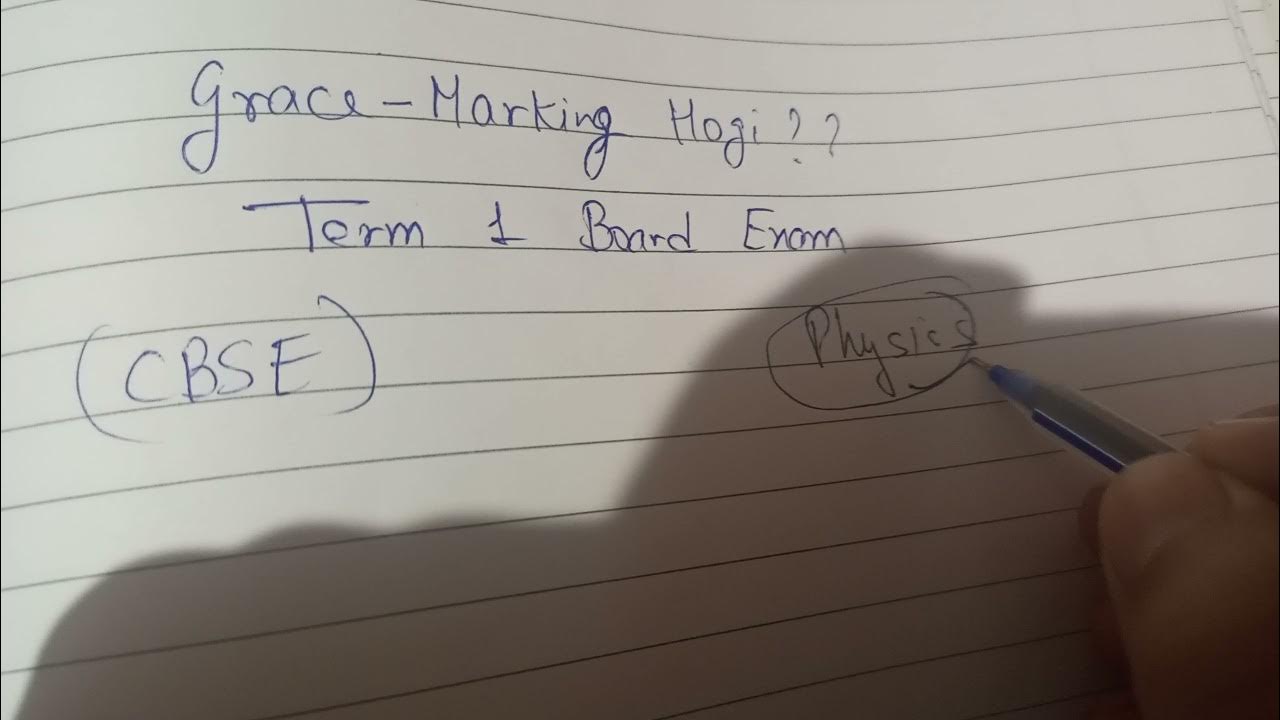 Grace-Marking Hogi??
Term 1 Board Exam
(CBSE)
Physics